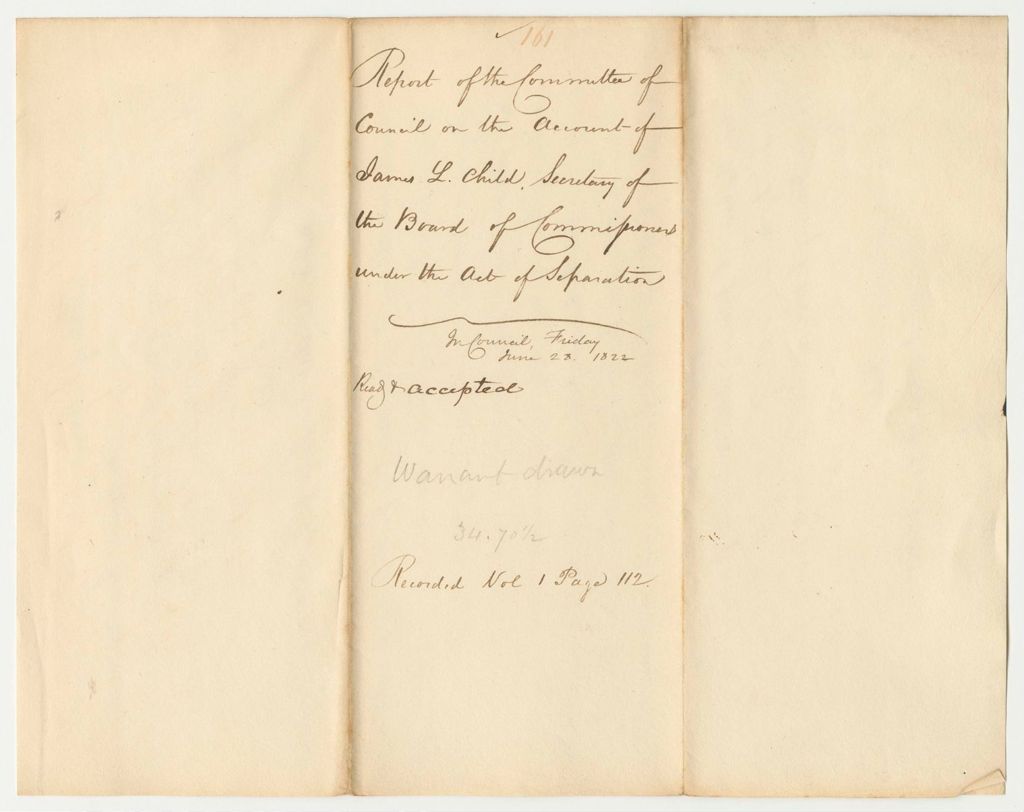 161
Report of the Committee of
Council on the Account of
James L. Child, Secretary of
the Board of Commissioners
under the Act of Separation
In Council, Friday
June 28. 1822
Read & accepted
Warrant drawn
34.70½
Recorded Vol 1 Page 112.